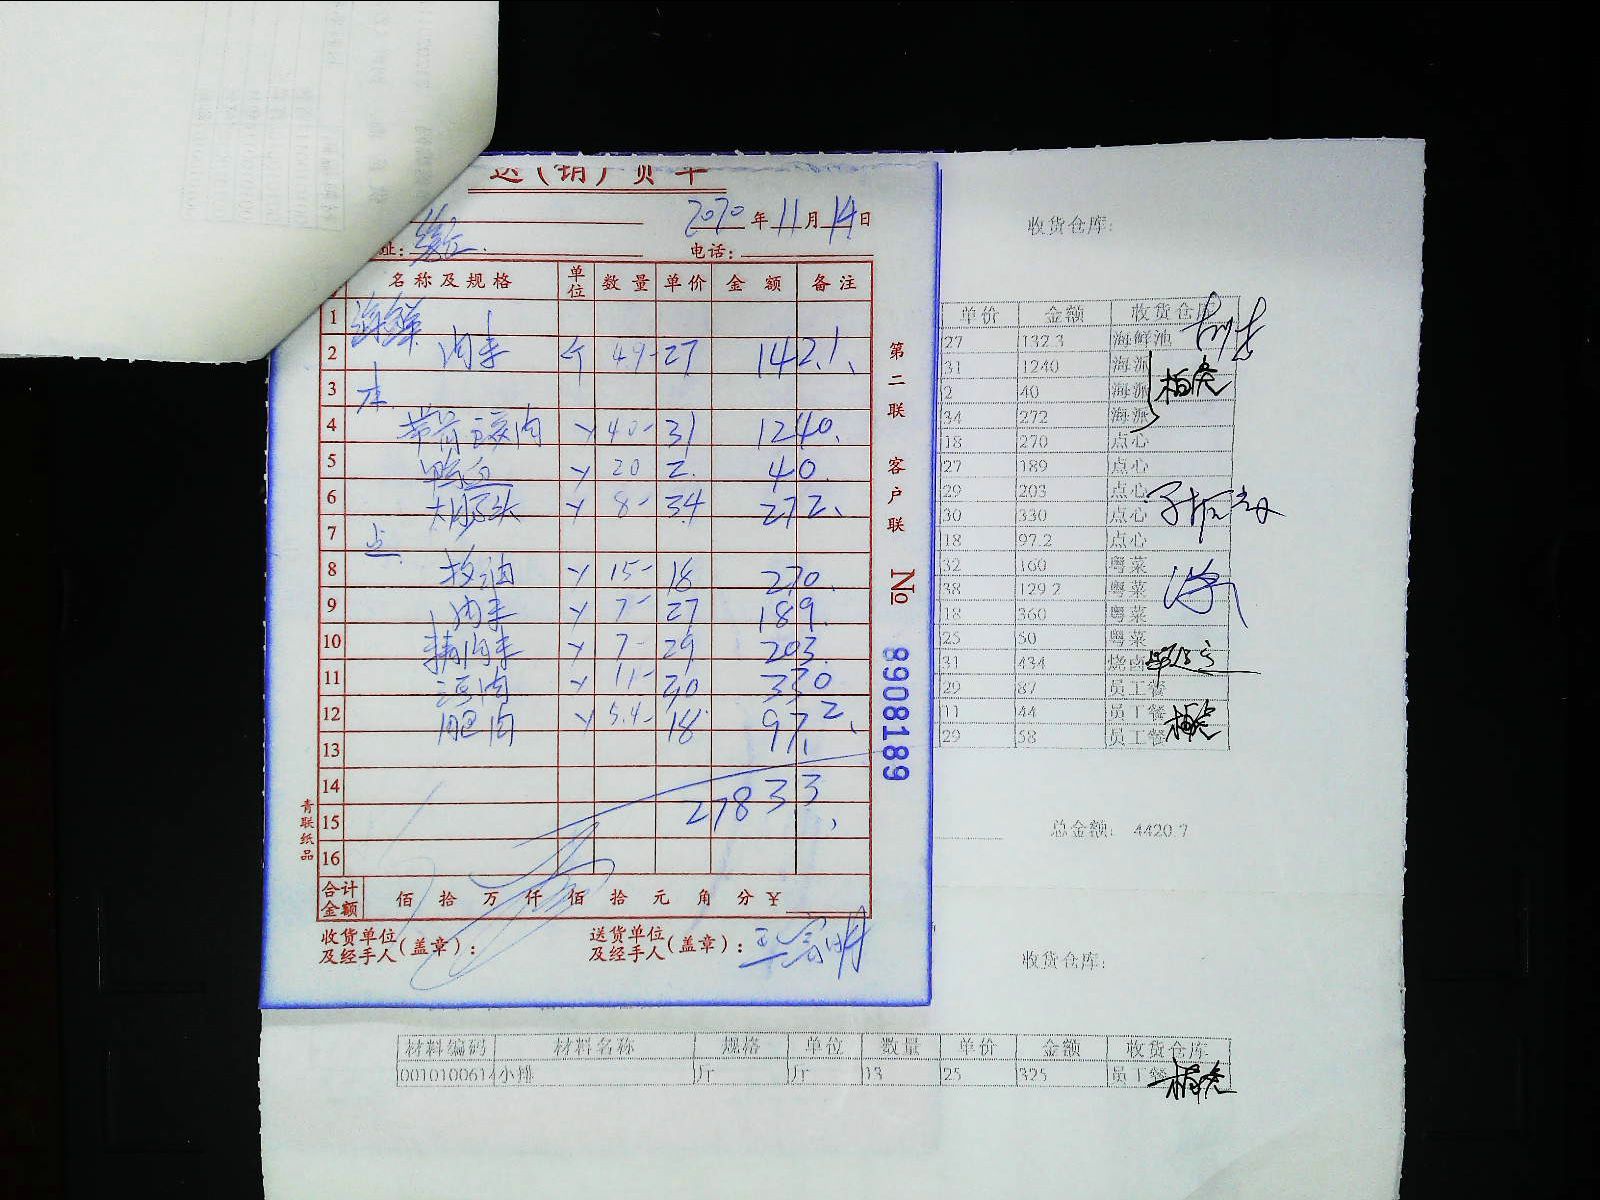 送(销)货单
2020年11月14日
址:
电话:
名称及规格 单位 数量 单价 金额 备注
1 海鲜
2 肉末 斤 4.9- 27 142.1
3 本
4 带骨 肉 斤 40- 31 1240.
5 鸭血 斤 20 2. 40.
6 大骨头 斤 8- 34 272.
7 点
8 板油 斤 15- 18 270.
9 肉末 斤 7- 27 189.
10 精肉末 斤 7- 29 203.
11 肉 斤 11- 30 330
12 腿肉 斤 5.4- 18 97.2
13
14 27833
15
16
合计金额 佰 拾 万 仟 佰 拾 元 角 分 ¥
收货单位及经手人(盖章):
送货单位及经手人(盖章):
第二联 客户联
No 8908189
青联纸品
收货仓库:
单价 金额 收货仓库
27 132.3 海鲜池
31 1240 海派
2 40 海派
34 272 海派
18 270 点心
27 189 点心
29 203 点心
30 330 点心
18 97.2 点心
32 160 粤菜
38 129.2 粤菜
18 360 粤菜
25 50 粤菜
31 434 烧卤
29 87 员工餐
11 44 员工餐
29 58 员工餐
总金额: 4420.7
收货仓库:
材料编码 材料名称 规格 单位 数量 单价 金额 收货仓库
0010100614 小排 斤 斤 13 25 325 员工餐